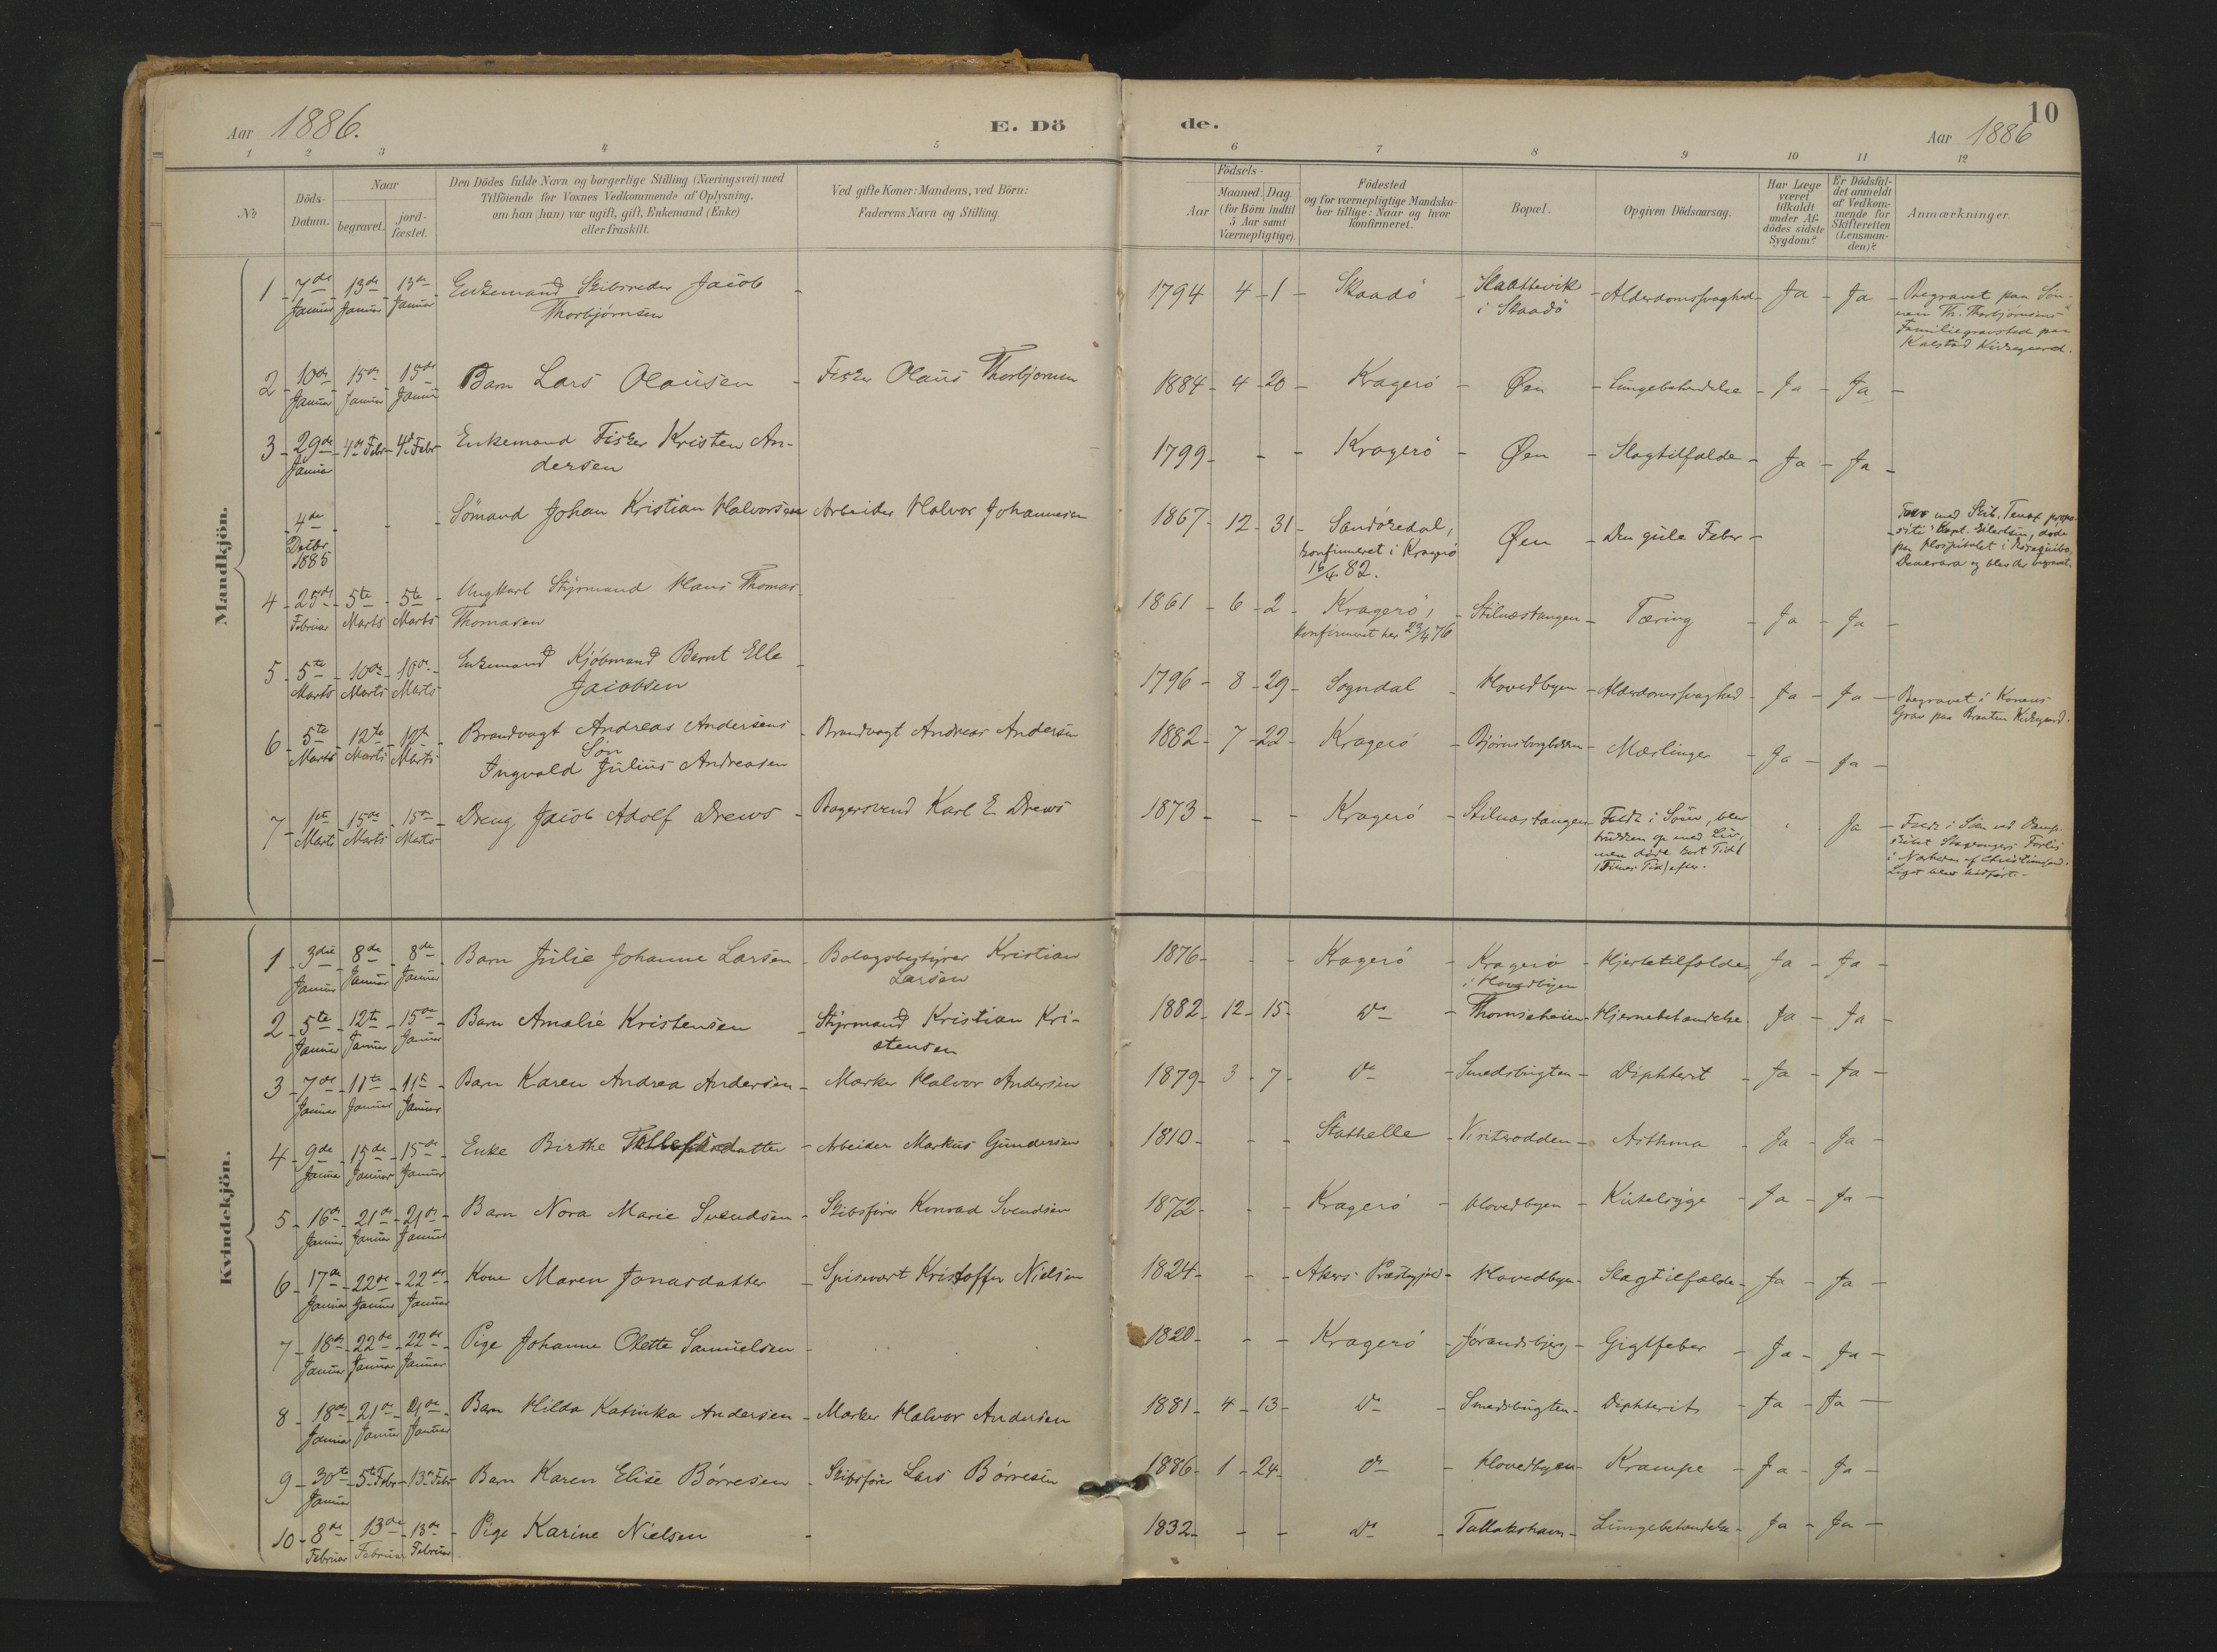 Aar 1886.
E. Döde.
10
Aar 1886
1 2 3 4 5 6 7 8 9 10 11 12
No
Döds-Datum.
Naar
begravet.
jord-fæstet.
Den Dödes fulde Navn og borgerlige Stilling (Næringsvei) med
Tilföiende for Voxnes Vedkommende af Oplysning,
om han (hun) var ugift, gift, Enkemand (Enke)
eller fraskilt.
Ved gifte Koner: Mandens, ved Börn:
Faderens Navn og Stilling.
Födsels-
Aar
Maaned. Dag.
(for Börn indtil
5 Aar samt
Værnepligtige).
Födested
og for værnepligtige Mandska-
ber tillige: Naar og hvor
konfirmeret.
Bopæl.
Opgiven Dödsaarsag.
Har Læge
været
tilkaldt
under Af-
dödes sidste
Sygdom?
Er Dödsfal-
det anmeldt
af Vedkom-
mende for
Skifteretten
(Lensman-
den)?
Anmærkninger.
Mandkjön.
1 - 7de Januar - 13de Januar - 13de Januar - Enkemand Skibsreder Jacob
Thorbjørnsen - 1794 - 4 - 1 - Skaadö - Slaattevik
i Skaadö - Alderdomssvaghed - Ja - Ja - Begravet paa Søn-
nen Th. Thorbjørnsens
Familiegravsted paa
Kalstad Kirkegaard.
2 - 10de Januar - 15de Januar - 15de Januar - Barn Lars Olausen - Fisker Olaus Thorbjørnsen - 1884 - 4 - 20 - Kragerö - Øen - Lungebetændelse - Ja - Ja -
3 - 29de Januar - 4de Febr - 4de Febr - Enkemand Fisker Kristen An-
dersen - 1799 - - - Kragerö - Øen - Slagtilfælde - Ja - Ja -
4de Decbr 1885 - - - Sömand Johan Kristian Halvorsen Arbeider Halvor Johannesen 1867 - 12 - 31 - Sandökedal,
konfirmeret i Kragerö
16/4 82. Øen - Den gule Feber -
med Skib. Kapt. Eilertsen, døde
paa Hospitalet i
Demerara og blev der begravet.
4 - 25de Februar - 5te Marts - 5te Marts - Ungkarl Styrmand Hans Thomas
Thomasen 1861 - 6 - 2 - Kragerö,
konfirmeret her 23/4 76 - Stilnæstangen - Tæring - Ja - Ja -
5 - 5te Marts - 10de Marts - 10de Marts - Enkemand Kjöbmand Bernt Elle
Jacobsen - 1796 - 8 - 29 - Sogndal - Hovedbyen - Alderdomssvaghed - Ja - Ja - Begravet i Konens
Grav paa Braaten Kirkegaard.
6 - 5te Marts - 12te Marts - 12te Marts - Brandvagt Andreas Andersens
Søn
Ingvald Julius Andreasen - Brandvagt Andreas Andersen 1882 - 7 - 22 - Kragerö - Bjørnsborgbakken - Mæslinger - Ja - Ja -
7 - 1ste Marts - 15de Marts - 15de Marts - Dreng Jacob Adolf Drews - Bagersvend Karl E. Drews 1873 - - - Kragerö - Stilnæstangen - Faldt i Søen, blev
trukken op med Liv,
men døde kort Tid
(Timers Tid) efter. Ja - Faldt i Søen ved Damp-
skibet Stavangers Forlis
i Nærheden af Christianssand.
Liget blev hidført. -
Kvindekjön.
1 - 3die Januar - 8de Januar - 8de Januar - Barn Julie Johanne Larsen - Bolagsbestyrer Kristian
Larsen 1876 - - - Kragerö - Kragerö
i Hovedbyen - Hjertetilfælde - Ja - Ja -
2 - 5te Januar - 12te Januar - 15de Januar - Barn Amalie Kristensen - Styrmand Kristian Kri-
stensen 1882 - 12 - 15 - Do - Thomseheien - Hjernebetændelse - Ja - Ja -
3 - 7de Januar - 11te Januar - 11te Januar - Barn Karen Andrea Andersen - Marker Halvor Andersen 1879 - 3 - 7 - Do - Smedsbugten - Diphterit - Ja - Ja -
4 - 9de Januar - 15de Januar - 15de Januar - Enke Birthe Tollefsdatter - Arbeider Markus Gundersen 1810 - - - Stathelle - Visitørodden - Asthma - Ja - Ja -
5 - 16de Januar - 21de Januar - 21de Januar - Barn Nora Marie Svendsen - Skibsfører Konrad Svendsen 1872 - - - Kragerö - Hovedbyen - Kirtelsyge - Ja - Ja -
6 - 17de Januar - 22de Januar - 22de Januar - Kone Maren Jonasdatter - Spisevært Kristoffer Nielsen 1824 - - - Akers Præstegjeld - Hovedbyen - Slagtilfælde - Ja - Ja -
7 - 18de Januar - 22de Januar - 22de Januar - Pige Johanne Olette Samuelsen - 1820 - - - Kragerö - Jørandsbjerg - Gigtfeber - Ja - Ja -
8 - 18de Januar - 21de Januar - 21de Januar - Barn Hilda Katinka Andersen - Marker Halvor Andersen 1881 - 4 - 13 - Do - Smedsbugten - Diphterit - Ja - Ja -
9 - 30te Januar - 5te Febr - 13de Febr - Barn Karen Elise Börresen - Skibsfører Lars Börresen 1886 - 1 - 24 - Do - Hovedbyen - Krampe - Ja - Ja -
10 - 8de Februar - 13de Februar - 13de Februar - Pige Karine Nielsen - 1832 - - - Do - Tallakshavn - Lungebetændelse - Ja - Ja -